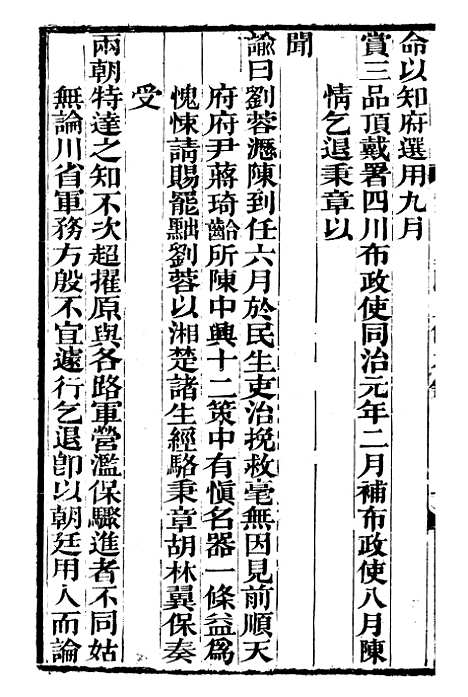 命以知府選用九月
賞三品頂戴署四川布政使同治元年二月補布政使八月陳
情乞退秉章以
聞
諭曰劉蓉瀝陳到任六月於民生吏治挽救毫無因見前順天
府府尹蔣琦齡所陳中興十二策中有愼名器一條益爲
愧悚請賜罷黜劉蓉以湘楚諸生經駱秉章胡林翼保奏
受
兩朝特達之知不次超擢原與各路軍營濫保驟進者不同姑
無論川省軍務方般不宜遽行乞退卽以朝廷用人而論